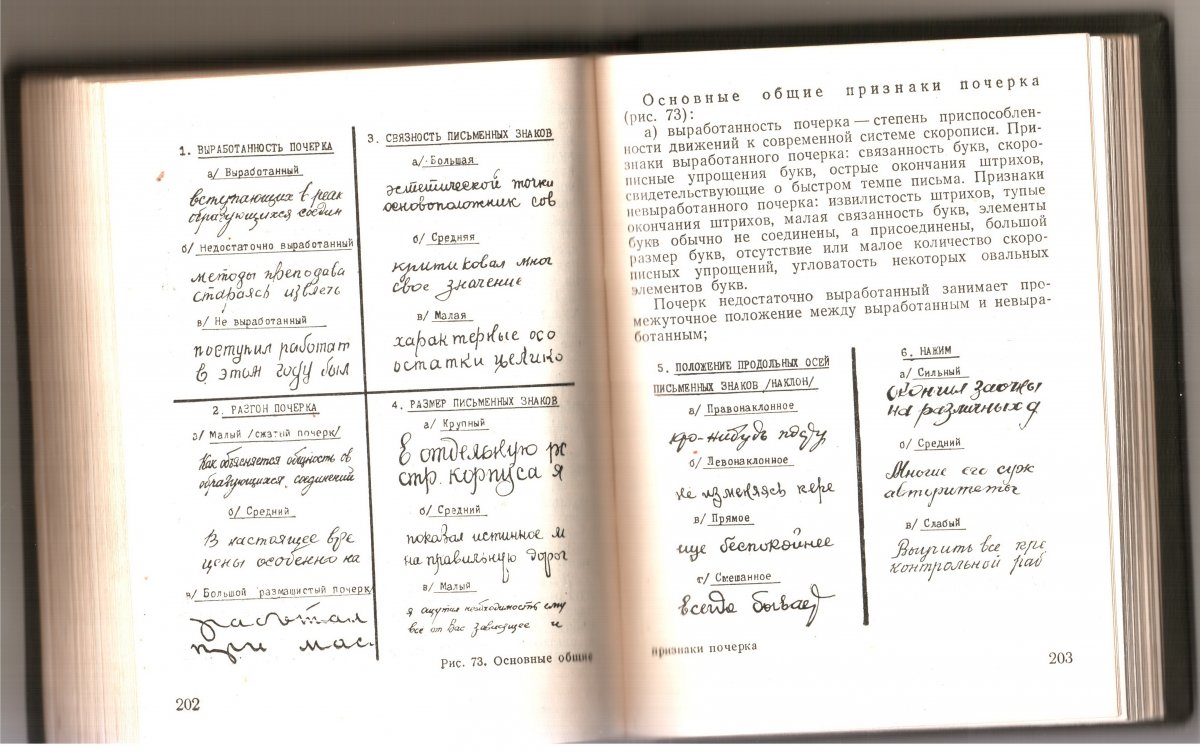 1. ВЫРАБОТАННОСТЬ ПОЧЕРКА
а/ Выработанный
вступающих в реак
образующихся соедин
б/ Недостаточно выработанный
методы преподава
стараясь извлечь
в/ Не выработанный
поступил работат
в этом году был
2. РАЗГОН ПОЧЕРКА
а/ Малый /сжатый почерк/
Как объясняется общность св
образующихся соединений
б/ Средний
В настоящее вре
цены особенно на
в/ Большой размашистый почерк/
работал
при мас.
3. СВЯЗНОСТЬ ПИСЬМЕННЫХ ЗНАКОВ
а/ Большая
эстетической точки
основоположник сов
б/ Средняя
критиковал мног
свое значение
в/ Малая
характерные осо
остатки целико
4. РАЗМЕР ПИСЬМЕННЫХ ЗНАКОВ
а/ Крупный
В отдельную рк
стр. корпуса я
б/ Средний
показал истинное м
на правильную дорог
в/ Малый
я ощутил необходимость ему
все от Вас зависящее и
Рис. 73. Основные общие
202
Основные общие признаки почерка
(рис. 73):
а) выработанность почерка — степень приспособлен-
ности движений к современной системе скорописи. При-
знаки выработанного почерка: связанность букв, скоро-
писные упрощения букв, острые окончания штрихов,
свидетельствующие о быстром темпе письма. Признаки
невыработанного почерка: извилистость штрихов, тупые
окончания штрихов, малая связанность букв, элементы
букв обычно не соединены, а присоединены, большой
размер букв, отсутствие или малое количество скоро-
писных упрощений, угловатость некоторых овальных
элементов букв.
Почерк недостаточно выработанный занимает про-
межуточное положение между выработанным и невыра-
ботанным;
5. ПОЛОЖЕНИЕ ПРОДОЛЬНЫХ ОСЕЙ
ПИСЬМЕННЫХ ЗНАКОВ /НАКЛОН/
а/ Правонаклонное
кто-нибудь
б/ Левонаклонное
не изменяясь пере
в/ Прямое
еще беспокойнее
г/ Смешанное
всегда бывает
6. НАЖИМ
а/ Сильный
окончил заочны
на различных д
б/ Средний
Многие его
авторитеты
в/ Слабый
Выучить все пре
контрольной раб
признаки почерка
203